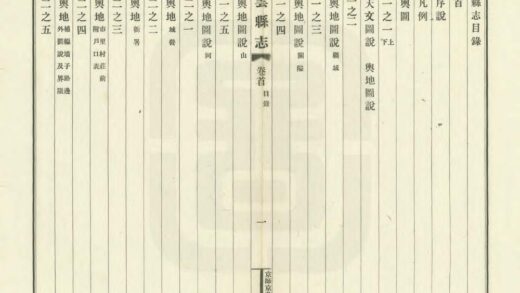 縣志目錄
首
序說
凡例
輿圖
一之一 上 下
天文圖說 輿地圖說
一之二
輿地圖說 縣城
一之三
輿地圖說 關隘
一之四
輿地圖說 山
一之五
輿地圖說 河
雲縣志 卷首 目錄 一 京師京
二之一
輿地 城垣
二之二
輿地 衙署
二之三
輿地 市里村莊前 附戶口表
二之四
輿地
外圖說及界限
二之五